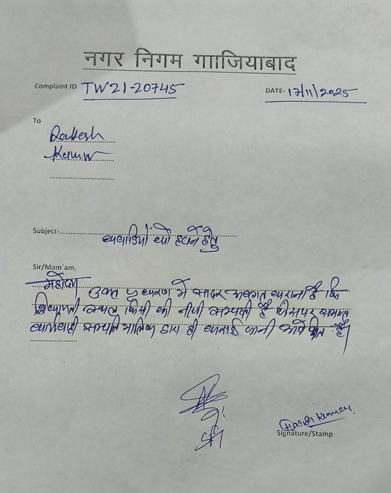 नगर निगम गााजियाबाद
Complaint ID TW21-20745
DATE- 17/11/2025
To
Rakesh
Kumar
Subject- झाड़ियों को हटाने हेतु
Sir/Mam'am,
महोदय
उक्त प्रकरण में सादर अवगत कराना है कि
शिकायती स्थल किसी की नीजी सम्पत्ती है जिसपर समस्त
कार्यवाही सम्पत्ति मालिक द्वारा ही कराई जानी अपेक्षित है।
Signature/Stamp